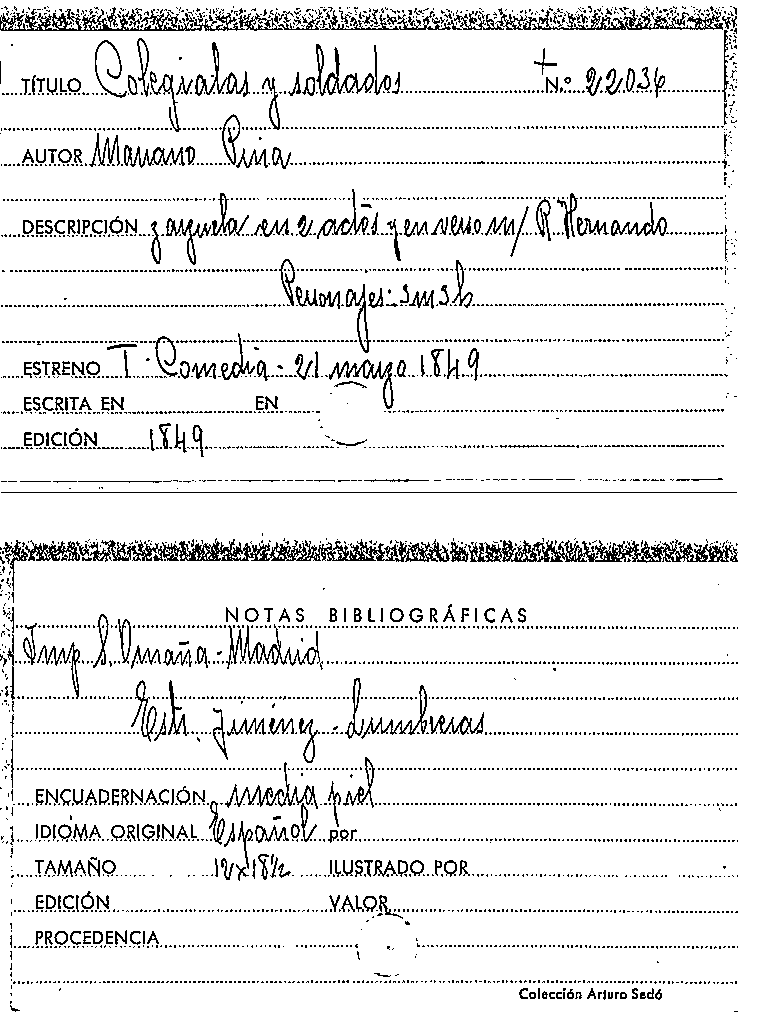 TÍTULO Colegialas y soldados N.º 22036
AUTOR Mariano Pina
DESCRIPCIÓN zarzuela en 2 actos y en verso m/ R. Hernando
Personajes: 3m3h
ESTRENO T. Comedia - 21 marzo 1849
ESCRITA EN EN
EDICIÓN 1849
NOTAS BIBLIOGRÁFICAS
Imp S. Omaña - Madrid
Estr. Jiménez - Lumbreras
ENCUADERNACIÓN media piel
IDIOMA ORIGINAL Español por
TAMAÑO 12x18½ ILUSTRADO POR
EDICIÓN VALOR
PROCEDENCIA
Colección Arturo Sedó